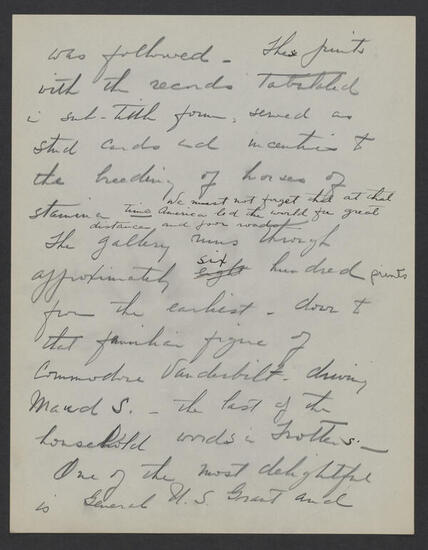 was followed - These prints
with the records Tabulated
in sub-title form, served as
stud cards and incentive to
the breeding of horses of
stamina time We must not forget that at that
America led the world for great
distances and poor roads
The gallery runs through
approximately six eight hundred prints
from the earliest - down to
that familiar figure of
Commodore Vanderbilt - driving
Maud S. - the last of the
household words in Trotters -
One of the most delightful
is General U. S. Grant and